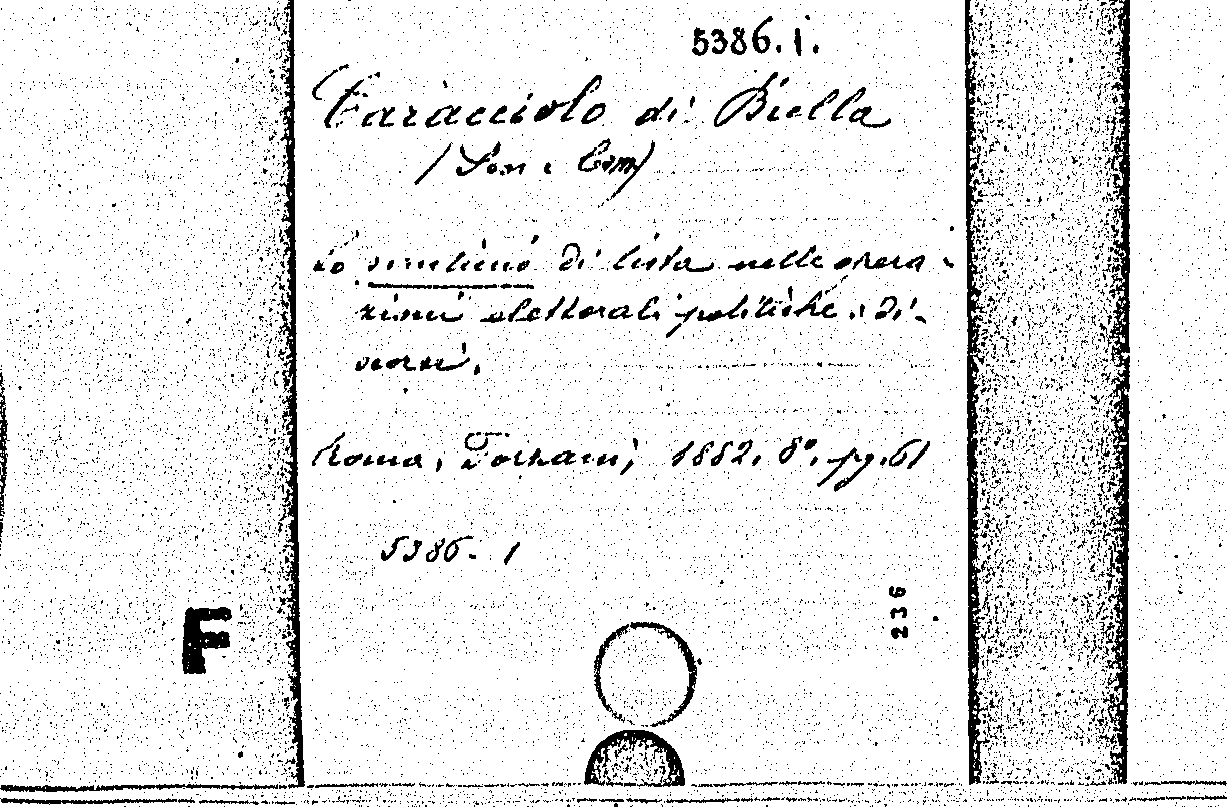 5386.1.
Caracciolo di Biella
(Sen e Com)
Lo scrutinio di lista nelle opera-
zioni elettorali politiche. Di-
scorsi.
Roma, Forzani, 1882. 8°. pg. 61
5386-1
236
F